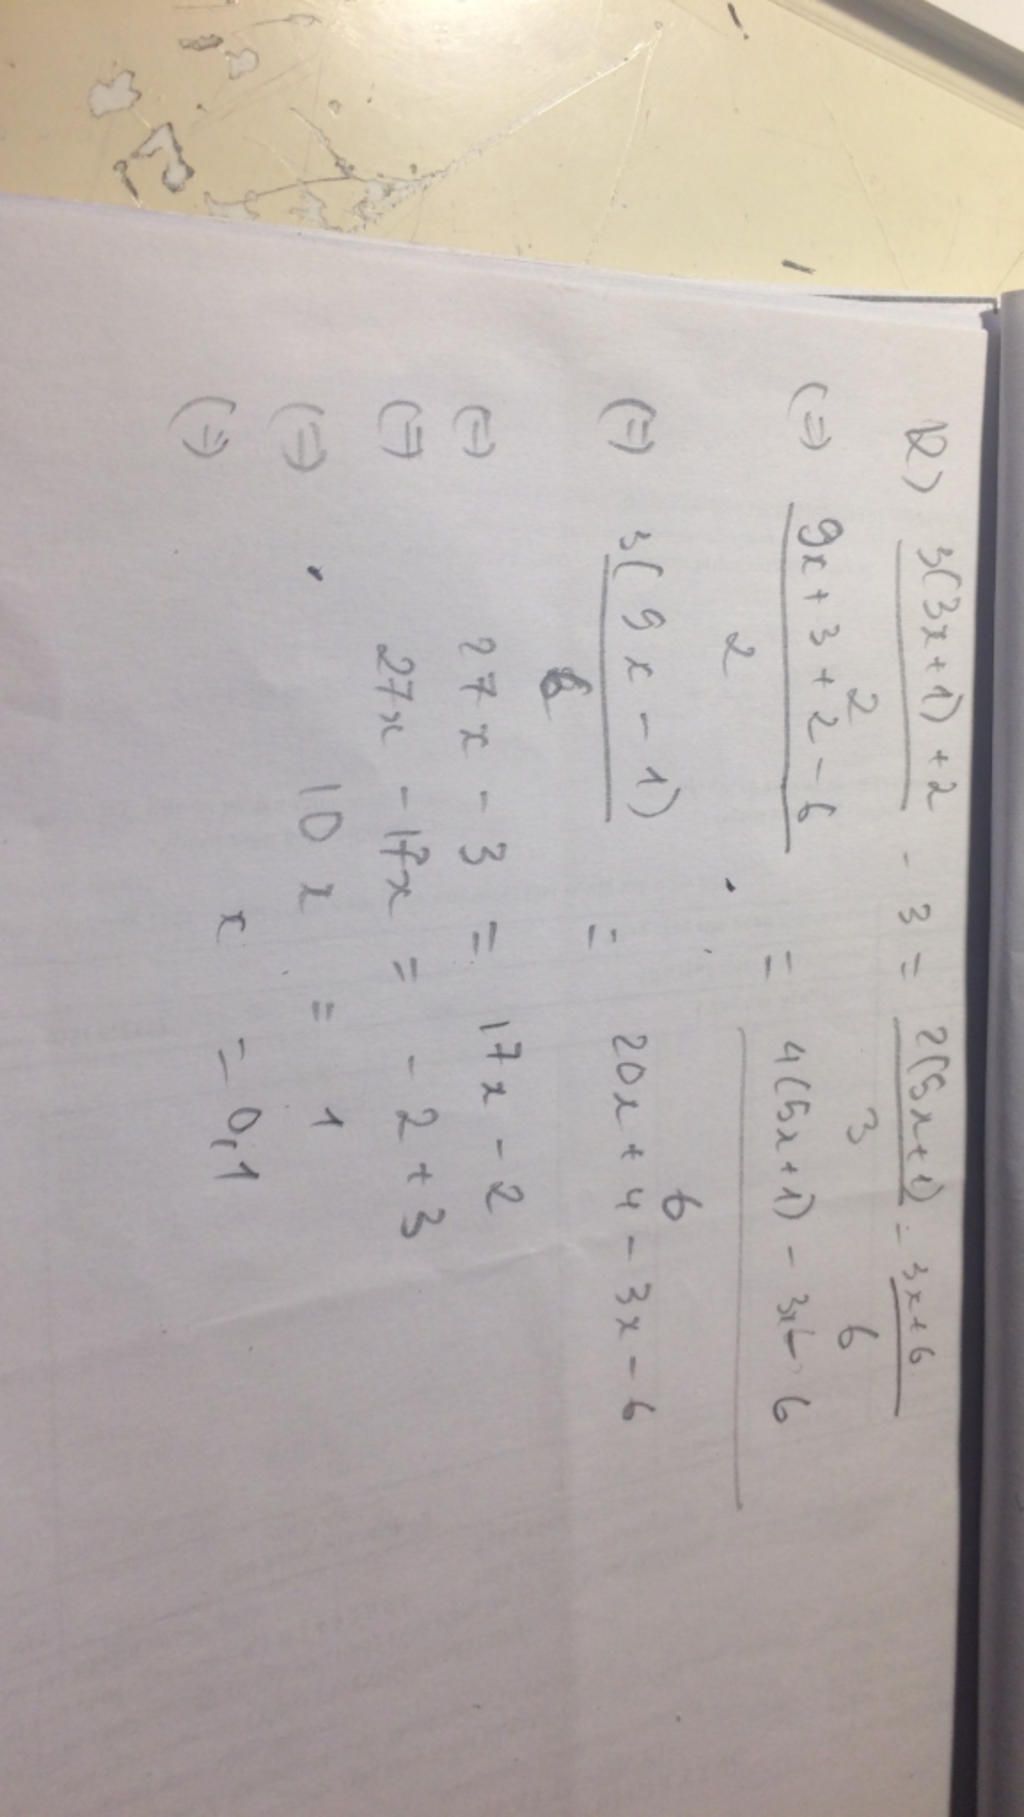 k) 3(3x+1)+2 - 3 = 2(5x+1) - 3x+6
2 3 6
(=) 9x+3+2-6 = 4(5x+1) - 3x-6
2 6
(=) 3(9x-1) = 20x+4-3x-6
6
(=) 27x-3 = 17x-2
(=) 27x-17x = -2+3
(=) 10x = 1
(=) x = 0,1